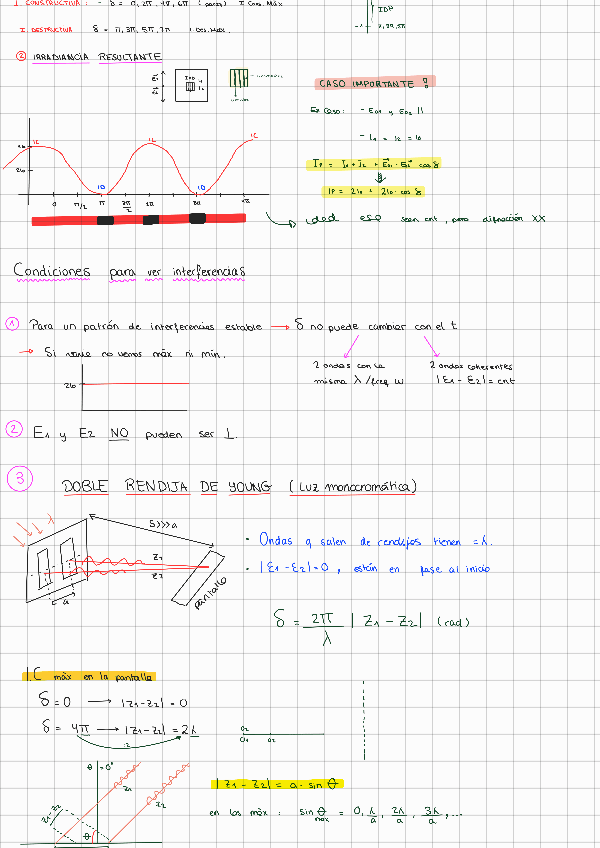 I. CONSTRUCTIVA: - δ = 0, 2π, 4π, 6π (pares) I Cons. Máx
I. DESTRUCTIVA δ = π, 3π, 5π, 7π I Des. Máx.
IDP
π, 3π, 5π
② IRRADIANCIA RESULTANTE
CASO IMPORTANTE !
En caso: - E01 y E02 ||
- I1 = I2 = I0
IP = I1 + I2 + E01 · E02 cos δ
IP = 2I0 + 2I0 · cos δ
IC IC IC
4I0
2I0
ID ID
0 π/2 π 3π/2 2π 3π 4π
Condiciones para ver interferencias
① Para un patrón de interferencias estable → δ no puede cambiar con el t
→ Si varía no vemos máx ni mín.
2I0
2 ondas con la misma λ / freq ω
2 ondas coherentes |E1 - E2| = cnt
② E1 y E2 NO pueden ser ⊥.
③ DOBLE RENDIJA DE YOUNG (Luz monocromática)
S>>>a
z1
z2
a
pantalla
· Ondas q salen de rendijas tienen = λ.
· |E1 - E2| = 0, están en fase al inicio
δ = 2π/λ |z1 - z2| (rad)
I.C máx en la pantalla
δ = 0 → |z1 - z2| = 0
δ = 4π → |z1 - z2| = 2λ
:2
θ = 0°
z1
z2
z1-z2
θ
|z1 - z2| = a · sin θ
en los máx: sin θ máx = 0, λ/a, 2λ/a, 3λ/a, ...